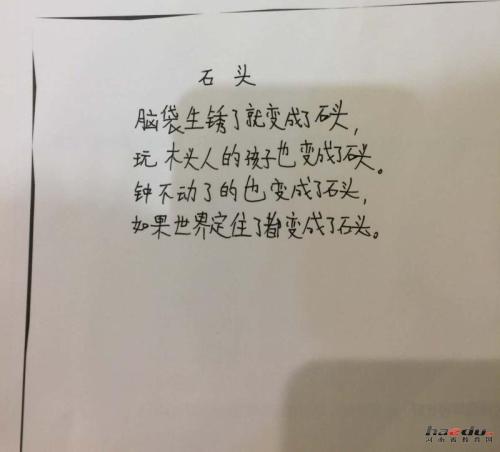 石头
脑袋生锈了就变成了石头，
玩木头人的孩子也变成了石头。
钟不动了的也变成了石头，
如果世界定住了都变成了石头。
haedu
河南省教育网